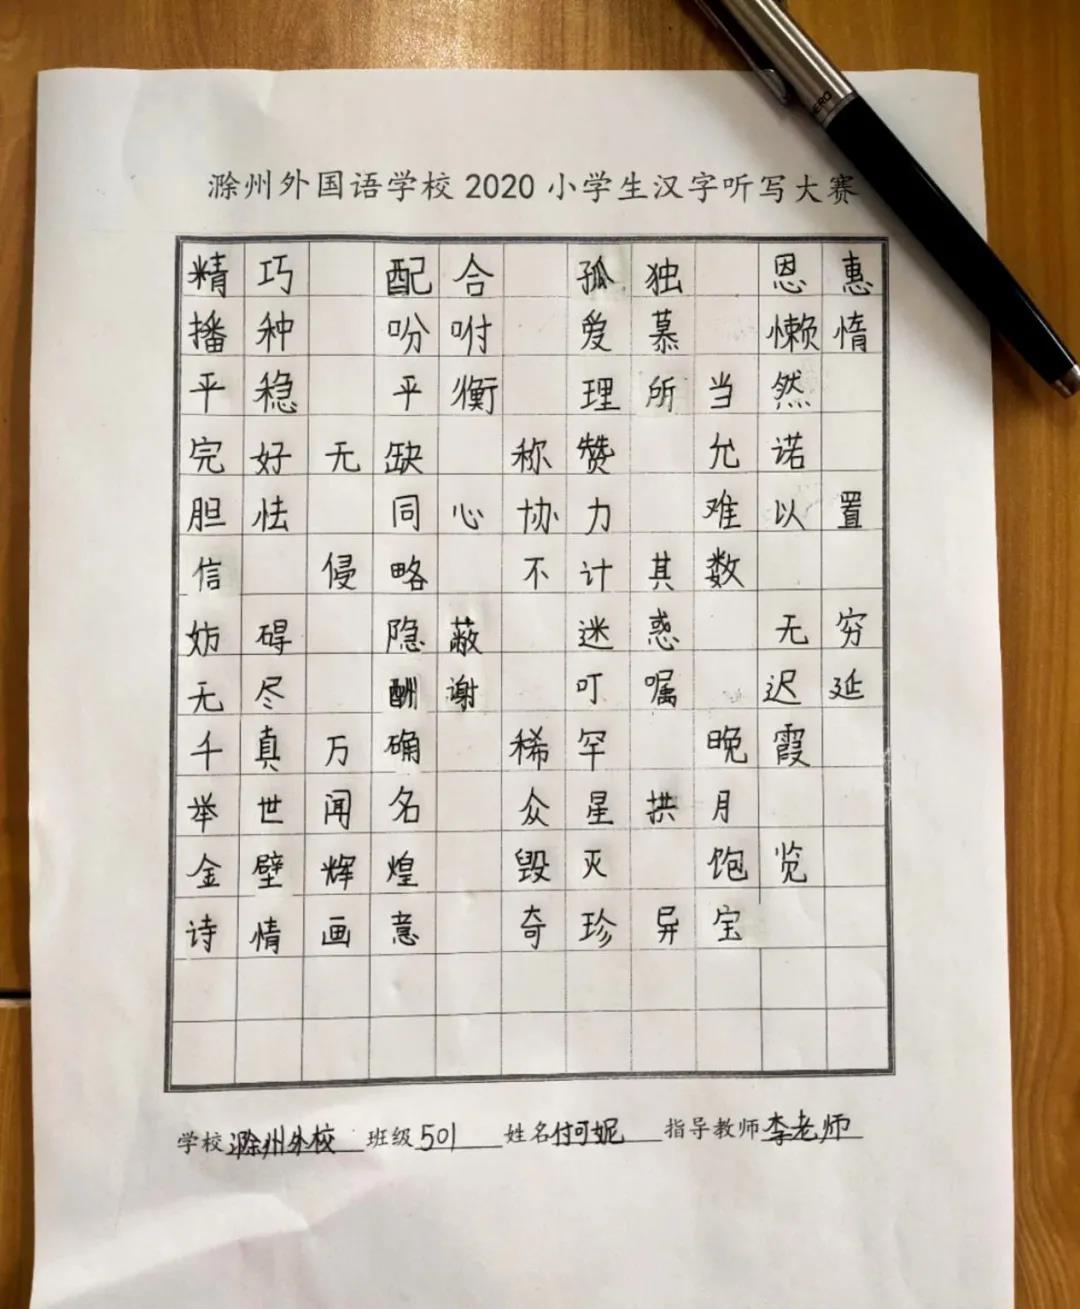 HERO
滁州外国语学校2020小学生汉字听写大赛
精巧 配合 孤独 恩惠
播种 吩咐 爱慕 懒惰
平稳 平衡 理所当然
完好无缺 称赞 允诺
胆怯 同心协力 难以置
信 侵略 不计其数
妨碍 隐蔽 迷惑 无穷
无尽 酬谢 叮嘱 迟延
千真万确 稀罕 晚霞
举世闻名 众星拱月
金壁辉煌 毁灭 饱览
诗情画意 奇珍异宝
学校滁州外校 班级501 姓名付可妮 指导教师李老师